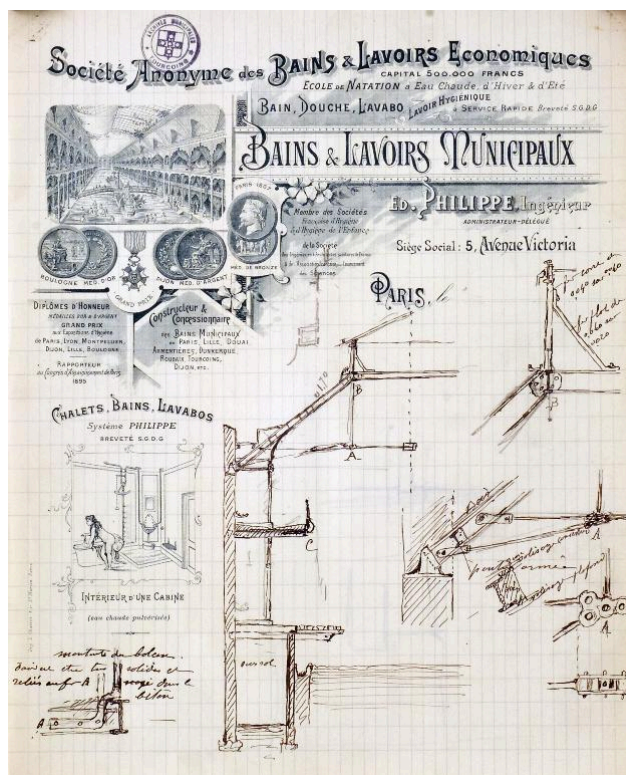 ARCHIVES MUNICIPALES
TOURCOING
Société Anonyme des BAINS & LAVOIRS ECONOMIQUES
CAPITAL 500.000 FRANCS
ECOLE DE NATATION à Eau Chaude, d'Hiver & d'Eté
BAIN, DOUCHE, LAVABO
LAVOIR HYGIENIQUE
à SERVICE RAPIDE Breveté S.G.D.G
BAINS & LAVOIRS MUNICIPAUX
PARIS 1887
MED. DE BRONZE
Membre des Sociétés
Française d'Hygiène
& d'Hygiène de l'Enfance
de la Société
des Sciences
ED. PHILIPPE, Ingénieur
ADMINISTRATEUR-DÉLÉGUÉ
Siège Social: 5, Avenue Victoria
PARIS, le
BOULOGNE MED. D'OR
GRAND PRIX
DIJON MED. D'ARGENT
DIPLÔMES D'HONNEUR
MÉDAILLES D'OR & D'ARGENT
GRAND PRIX
aux Expositions d'Hygiène
de PARIS, LYON, MONTPELLIER,
DIJON, LILLE, BOULOGNE
RAPPORTEUR
au Congrès d'Assainissement de Paris
1895
Constructeur &
Concessionnaire
des BAINS MUNICIPAUX
de PARIS, LILLE, DOUAI
ARMENTIÈRES, DUNKERQUE,
ROUBAIX, TOURCOING,
DIJON, etc.
CHALETS, BAINS, LAVABOS
Système PHILIPPE
BREVETÉ S.G.D.G
INTÉRIEUR D'UNE CABINE
(eau chaude pulvérisée)
B
A
0,170
C
B
A
A
A
sous sol
montants du balcon
doivent être très solides et
reliés au fer A
béton